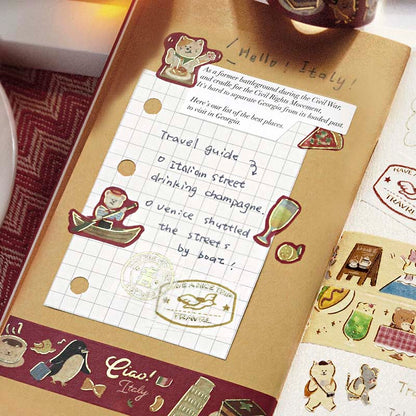 Hello! Italy!
As a former battleground during the Civil War,
and cradle for the Civil Rights Movement,
It's hard to separate Georgia, from its loaded past.
Here's our list of the best places
to visit in Georgia.
Travel Guide
o Italian street
drinking champagne.
o venice shuttled
the streets
by boat!
TRAVEL
Ciao!
Italy
TRAVEL